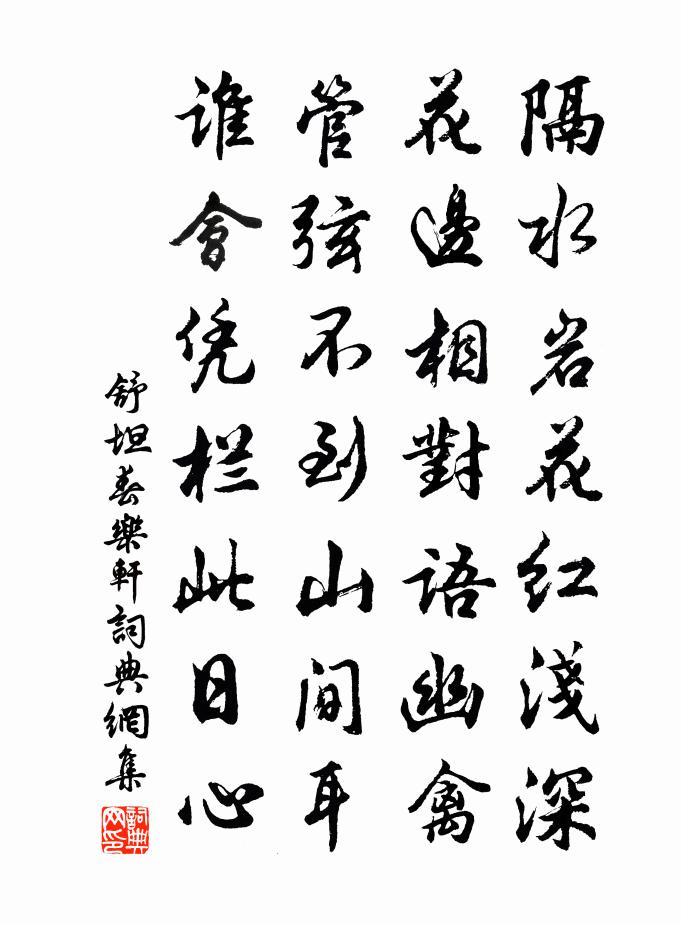 隔水岩花红淺深
花邊相對語幽禽
管弦不到山间耳
谁會凭栏此日心
舒坦春樂軒詞典網集
詞典网印